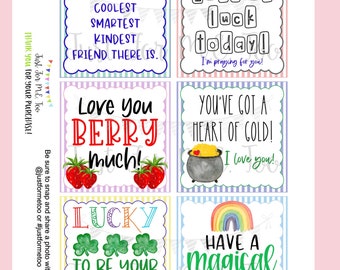 COOLEST
SMARTEST
KINDEST
FRIEND THERE IS.
luck
today!
I'm praying for you!
LOVE YOU
BERRY
much!
YOU'VE GOT A
HEART OF GOLD!
I love you!
LUCKY
TO BE YOUR
HAVE A
magical
Just for Me, Too
THANK YOU
FOR YOUR PURCHASE!
Be sure to snap and share a photo with
@justformetoo or #justformetoo